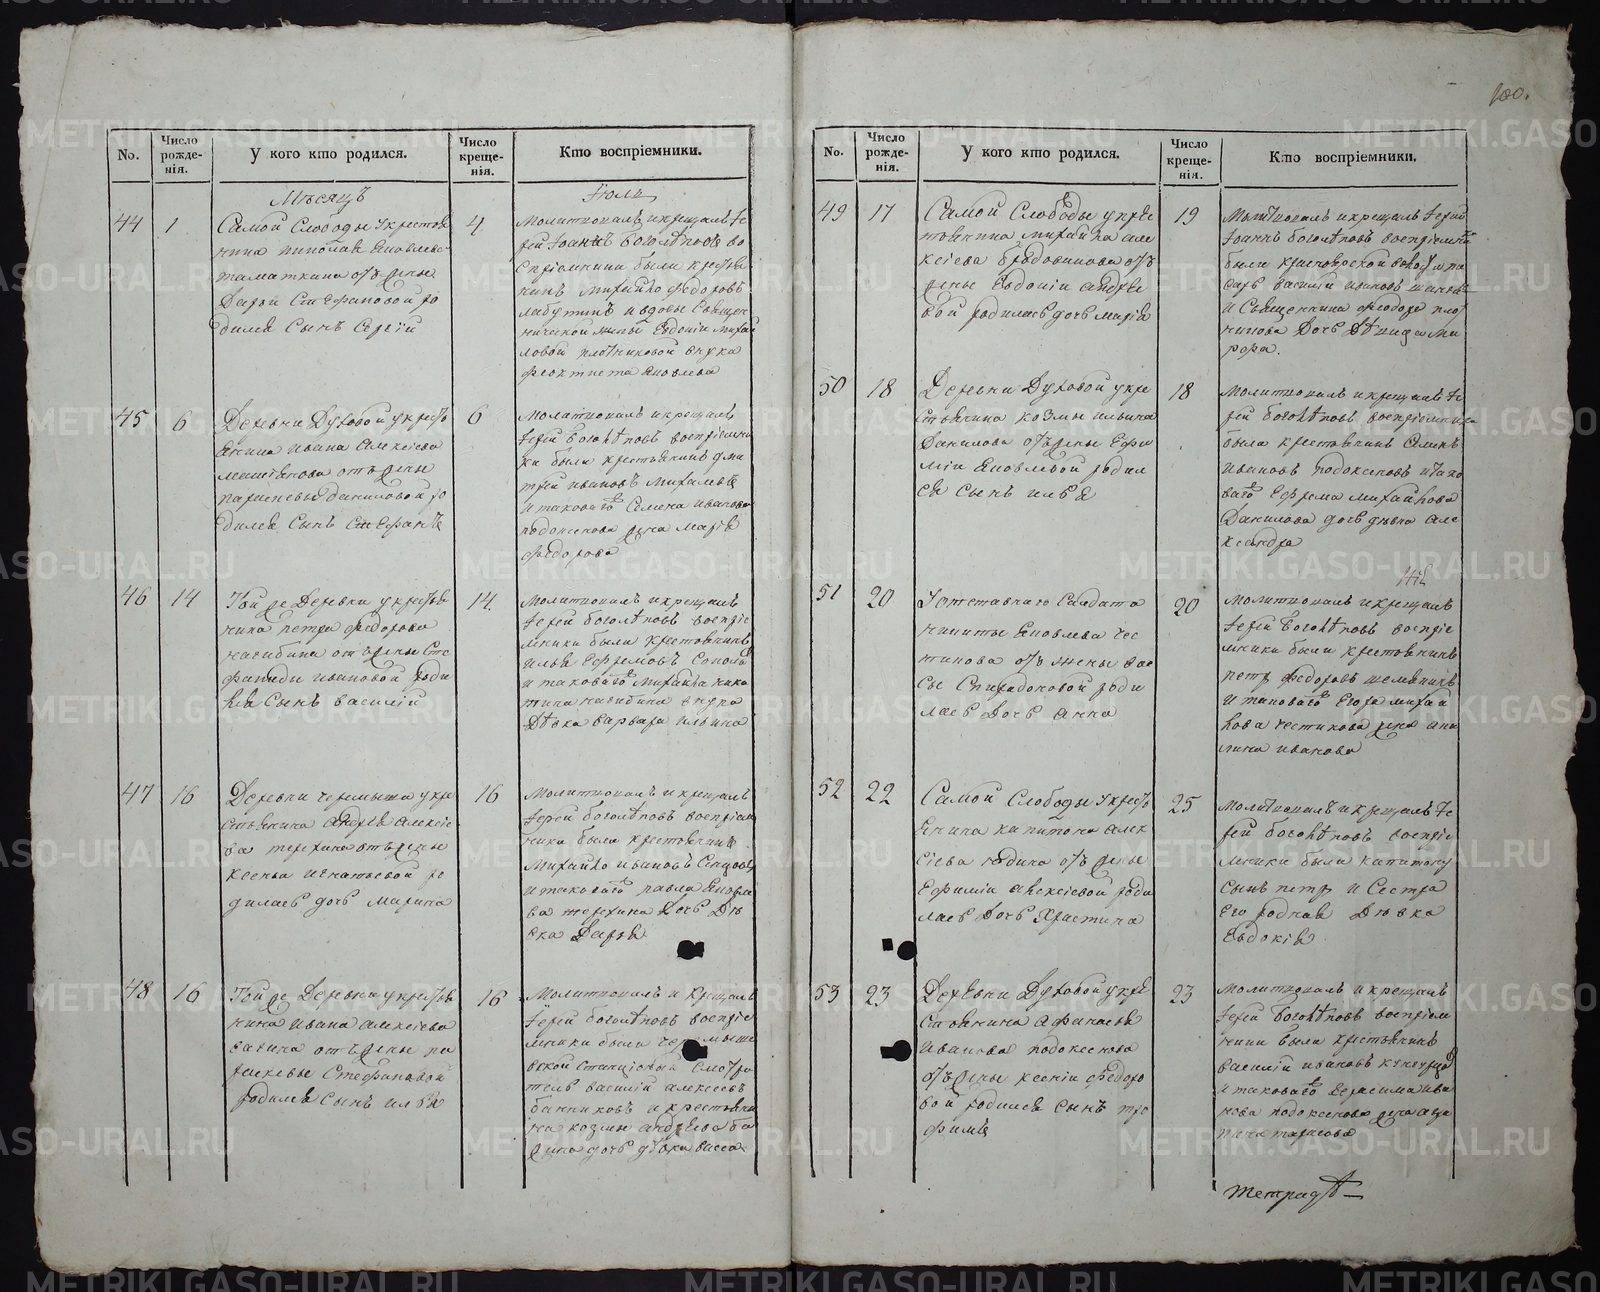 100.
No.
Число рожде-нія.
У кого кто родился.
Число креще-нія.
Кто воспріемники.
Мѣсяцъ
Іюль
44
1
Самой Слободы у крестья
нина николая Яковлева
отъ жены
Дарьи Стефановой ро
дился Сынъ Сергій
4
Молитвовалъ и крещалъ Іе
рей Іоаннъ Боголѣповъ во
спріемники были крестья
нинъ Михайло Федоровъ
и вдовы Священ
нической жены Евдокіи Михай
ловой плотниковой внука
Феоктиста Яковлева
45
6
Деревни Духовой у кресть
янина Ивана Алексіева
отъ жены
парасковьи Даниловой ро
дился Сынъ Стефанъ
6
Молитвовалъ и крещалъ
Іерей Боголѣповъ воспріемни
ки были крестьянинъ Дми
трей Ивановъ Михалевъ
и таковаго Семена Иванова
подоксенова жена Марія
Федорова
46
14
Той же Деревни у крестья
нина петра Федорова
нагибина отъ жены Сте
фаниды Ивановой роди
лся Сынъ Василій
14.
Молитвовалъ и крещалъ
Іерей Боголѣповъ воспріе
мники были крестьянинъ
Илья Ефремовъ
и таковаго Михайла ники
тина нагибина внука
Дѣвка Варвара Ильина
47
16
Деревни Черемыша у кре
стьянина Андрея Алексіе
ва терехина отъ жены
ксеньи Игнатьевой ро
дилась дочь Марина
16
Молитвовалъ и крещалъ
Іерей Боголѣповъ воспріем
ники были крестьянинъ
Михайло Ивановъ
и таковаго павла Яковле
ва терехина Дочь Дѣ
вка Дарья
48
16
Той же Деревни у крестья
нина Ивана Алексіева
отъ жены па
расковьи Стефановой
родился Сынъ Илья
16
Молитвовалъ и Крещалъ
Іерей Боголѣповъ воспріе
мники были Черемыше
вской Станціоной Смотри
тель Василій Алексеевъ
банниковъ и крестьяни
на козмы Андреева ба
жина дочь дѣвка васса
No.
Число рожде-нія.
У кого кто родился.
Число креще-нія.
Кто воспріемники.
49
17
Самой Слободы у кре
стьянина Михайла але
ксіева бродовикова отъ
жены Евдокіи андрее
вой родилась дочь марія
19
Молитвовалъ и крещалъ Іерей
Іоаннъ Боголѣповъ воспріемни
были красноярской волости пи
сарь Василій Ивановъ
и Священника Феодора пло
тникова Дочь Дѣвица Ми
рофа.
50
18
Деревни Духовой у кре
стьянина козмы Ильина
Данилова отъ жены Ефи
міи Яковлевой родил
ся Сынъ Илья
18
Молитвовалъ и крещалъ Іе
рей Боголѣповъ воспріемники
были крестьянинъ
Ивановъ подоксеновъ и тако
ваго Ефрема Михайлова
Данилова дочь дѣвка але
ксандра
51
20
У отставнаго Салдата
никиты Яковлева чес
тикова отъ жены вас
сы Спиридоновой роди
лась Дочь Анна
20
Молитвовалъ и крещалъ
Іерей Боголѣповъ воспріе
мники были крестьянинъ
петръ Федоровъ шемякинъ
и таковаго Егора Михай
лова честикова жена
Иванова
52
22
Самой Слободы у кресть
янина капитона алек
сіева юдина отъ жены
Ефиміи Алексіевой роди
лась Дочь Христина
25
Молитвовалъ и крещалъ Іе
рей Боголѣповъ воспріе
мники были капитону
Сынъ петръ и Сестра
Его родная Дѣвка
Евдокія
53
23
Деревни Духовой у кре
стьянина Афанасья
Иванова подоксенова
отъ жены ксеніи Федоро
вой родился Сынъ тро
фимъ
23
Молитвовалъ и крещалъ
Іерей Боголѣповъ воспріем
ники были крестьянинъ
Василій Ивановъ
и таковаго Герасима Ива
нова подоксенова жена
тарасова
тетрадь